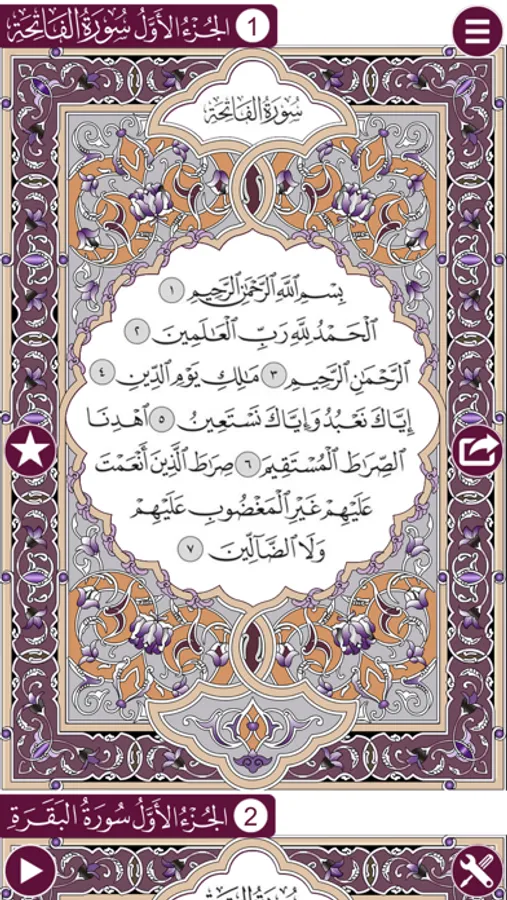 الجُزْءُ الأَوَّلُ سُورَةُ الفَاتِحَة 1
سُورَةُ الفَاتِحَة
بِسْمِ اللَّهِ الرَّحْمَٰنِ الرَّحِيمِ ١
الْحَمْدُ لِلَّهِ رَبِّ الْعَالَمِينَ ٢
الرَّحْمَٰنِ الرَّحِيمِ ٣ مَالِكِ يَوْمِ الدِّينِ ٤
إِيَّاكَ نَعْبُدُ وَإِيَّاكَ نَسْتَعِينُ ٥ اهْدِنَا
الصِّرَاطَ الْمُسْتَقِيمَ ٦ صِرَاطَ الَّذِينَ أَنْعَمْتَ
عَلَيْهِمْ غَيْرِ الْمَغْضُوبِ عَلَيْهِمْ
وَلَا الضَّالِّينَ ٧
الجُزْءُ الأَوَّلُ سُورَةُ البَقَرَة 2